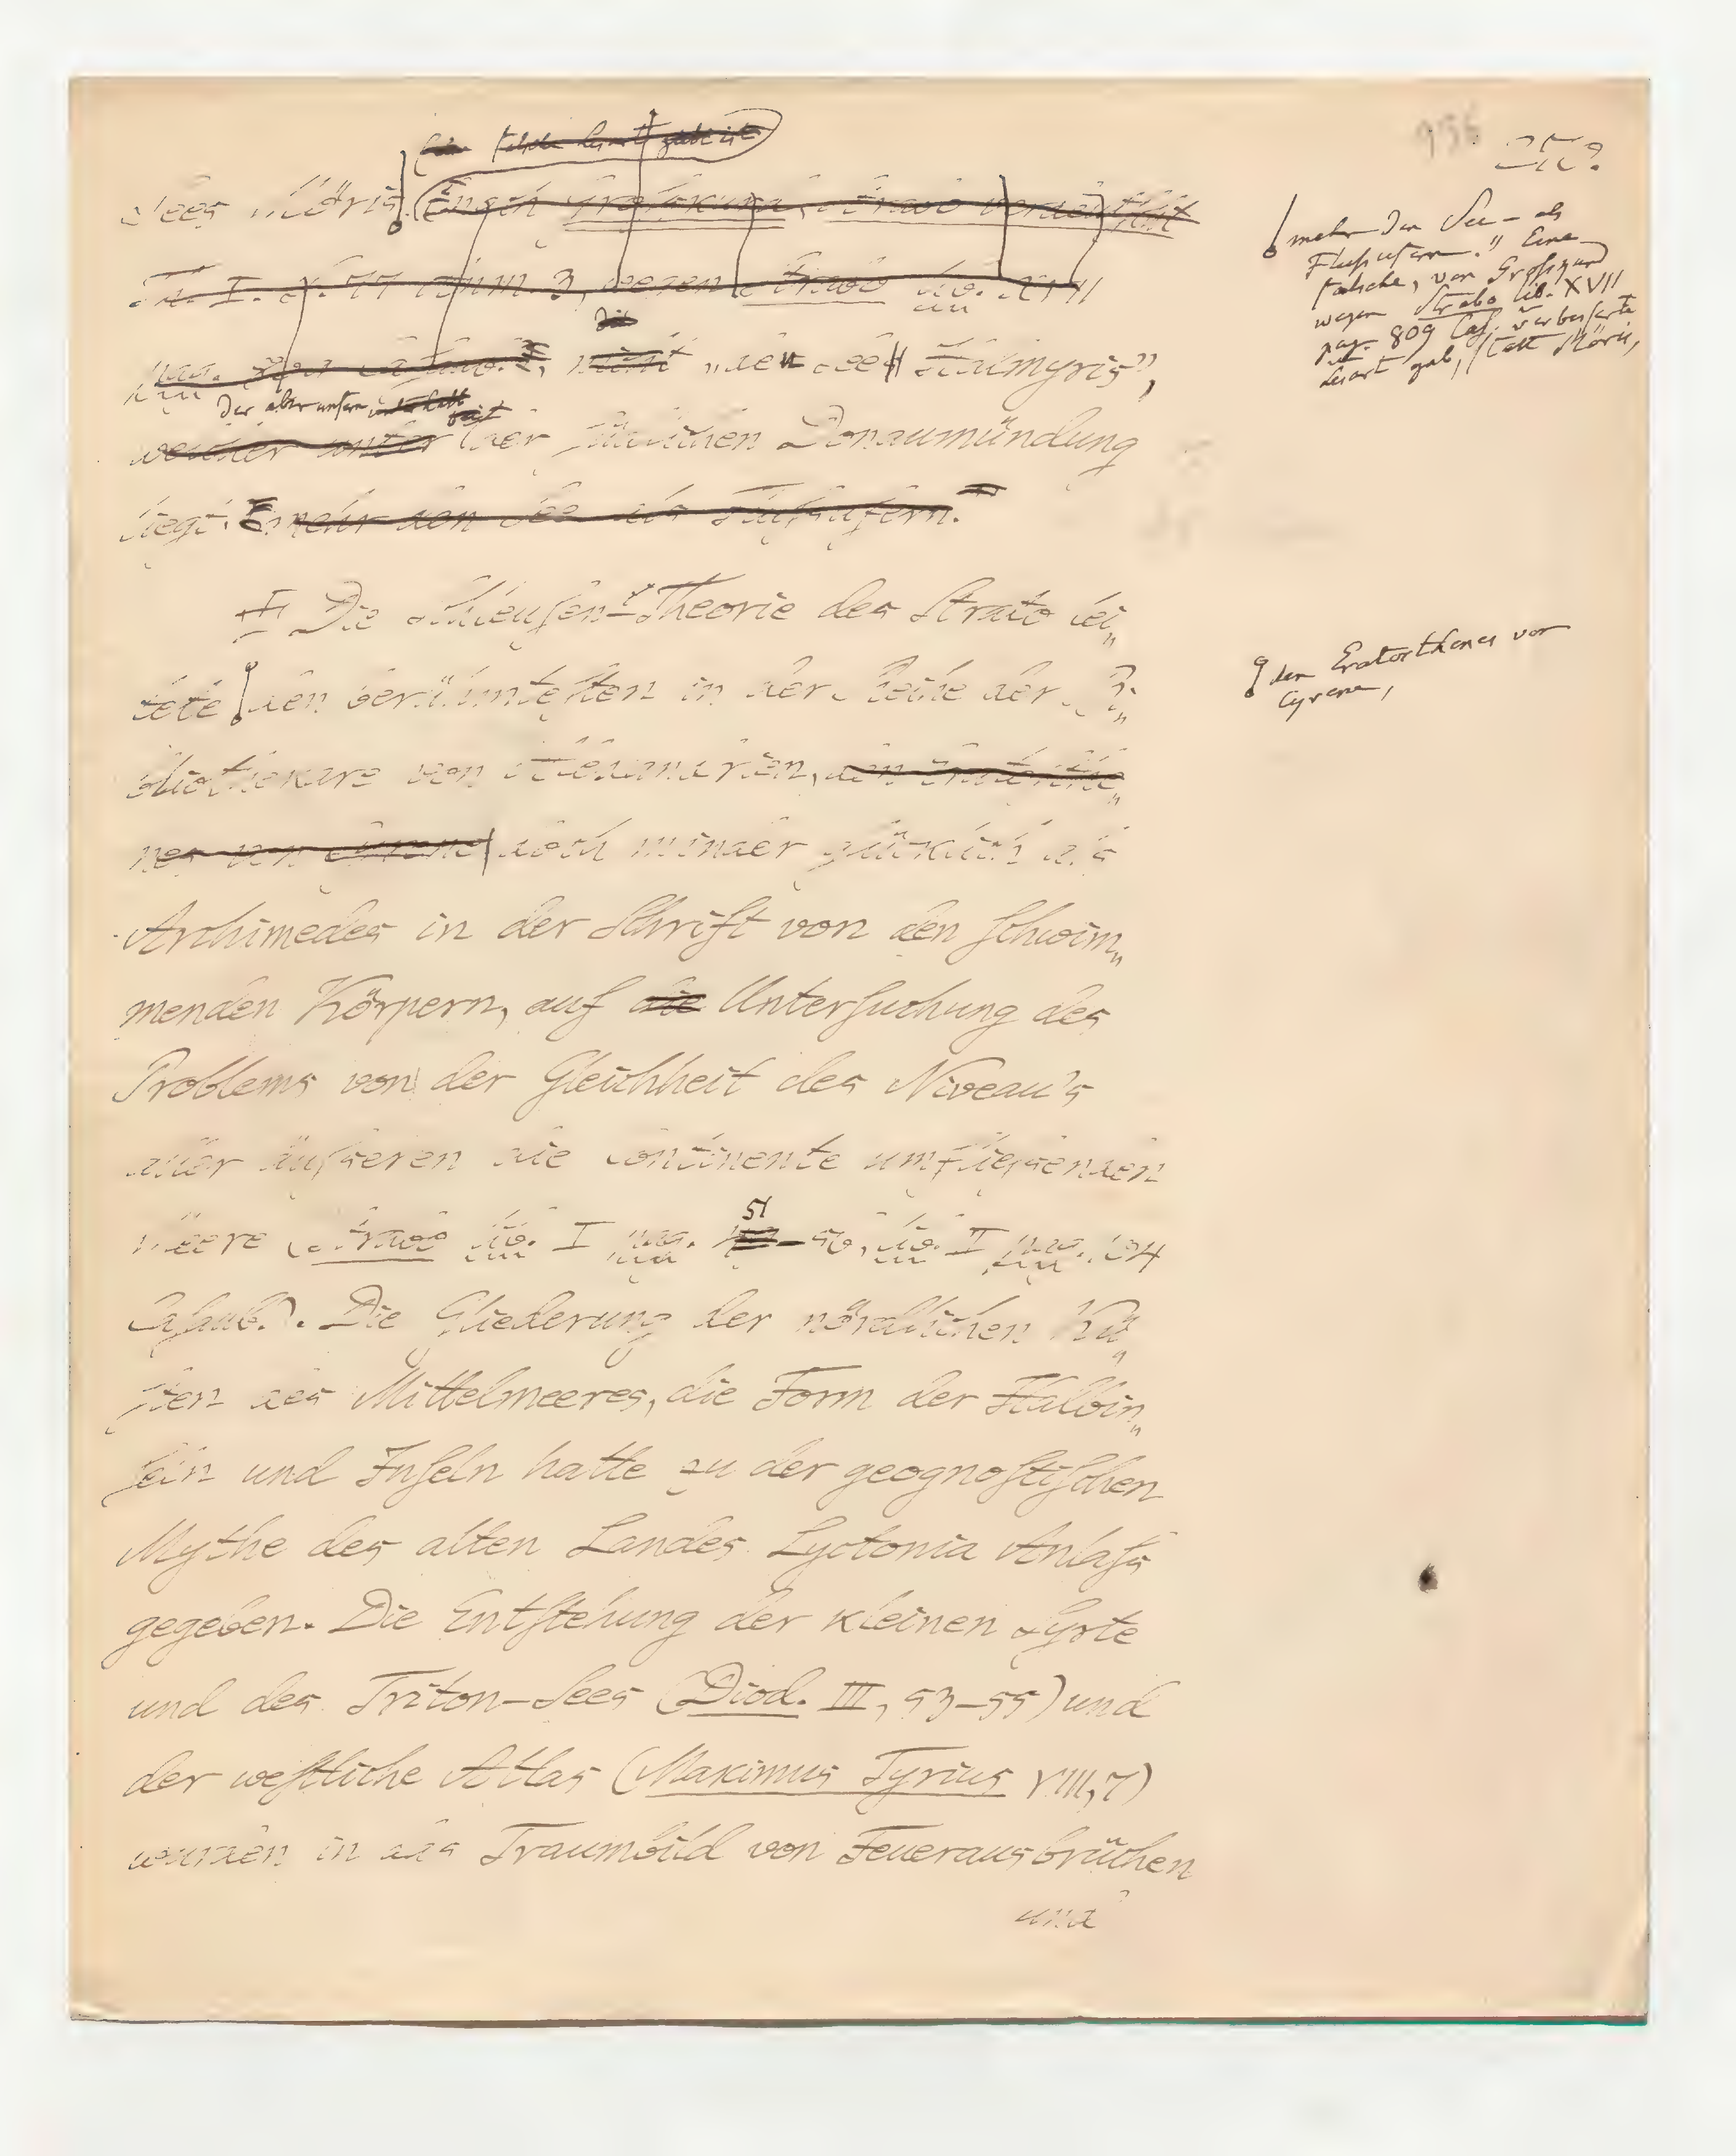 956
257
Sees Möris. (Siehe Groskurd, Strabo verdeutscht
Th. I. S. 77 Anm. 3, wegen Strabo lib. XVII
pag. 809 Casaub.), „den See Halmyris",
Der aber unfern
welcher unfer der südlichen Donaumündung
liegt. mehr den See als Flußufern.
! mehr den See – als
Flußufern." Eine
falsche, von Groskurd
wegen Strabo lib. XVII
pag. 809 Cas. verbesserte
Lesart gab, statt Möris,
Die Schleusen-Theorie des Strato lei„
tete den berühmtesten in der Reihe der Bi„
bliothekare von Alexandrien, den Eratosthe„
nes von Cyrene, doch minder glücklich als
den Eratosthenes von
Cyrene,
Archimedes in der Schrift von den schwim„
menden Körpern, auf die Untersuchung des
Problems von der Gleichheit des Niveau's
aller äusseren die Continente umfliessenden
51
Meere (Strabo lib. I pag. –56, lib. II pag. 104
Casaub.). Die Gliederung der nördlichen Kü„
sten des Mittelmeeres, die Form der Halbin„
seln und Inseln hatte zu der geognostischen
Mythe des alten Landes Lyctonia Anlaß
gegeben. Die Entstehung der kleinen Syrte
und des Triton-Sees (Diod. III, 53–55) und
der westliche Atlas (Maximus Tyrius VIII, 7)
wurden in das Traumbild von Feuerausbrüchen
und